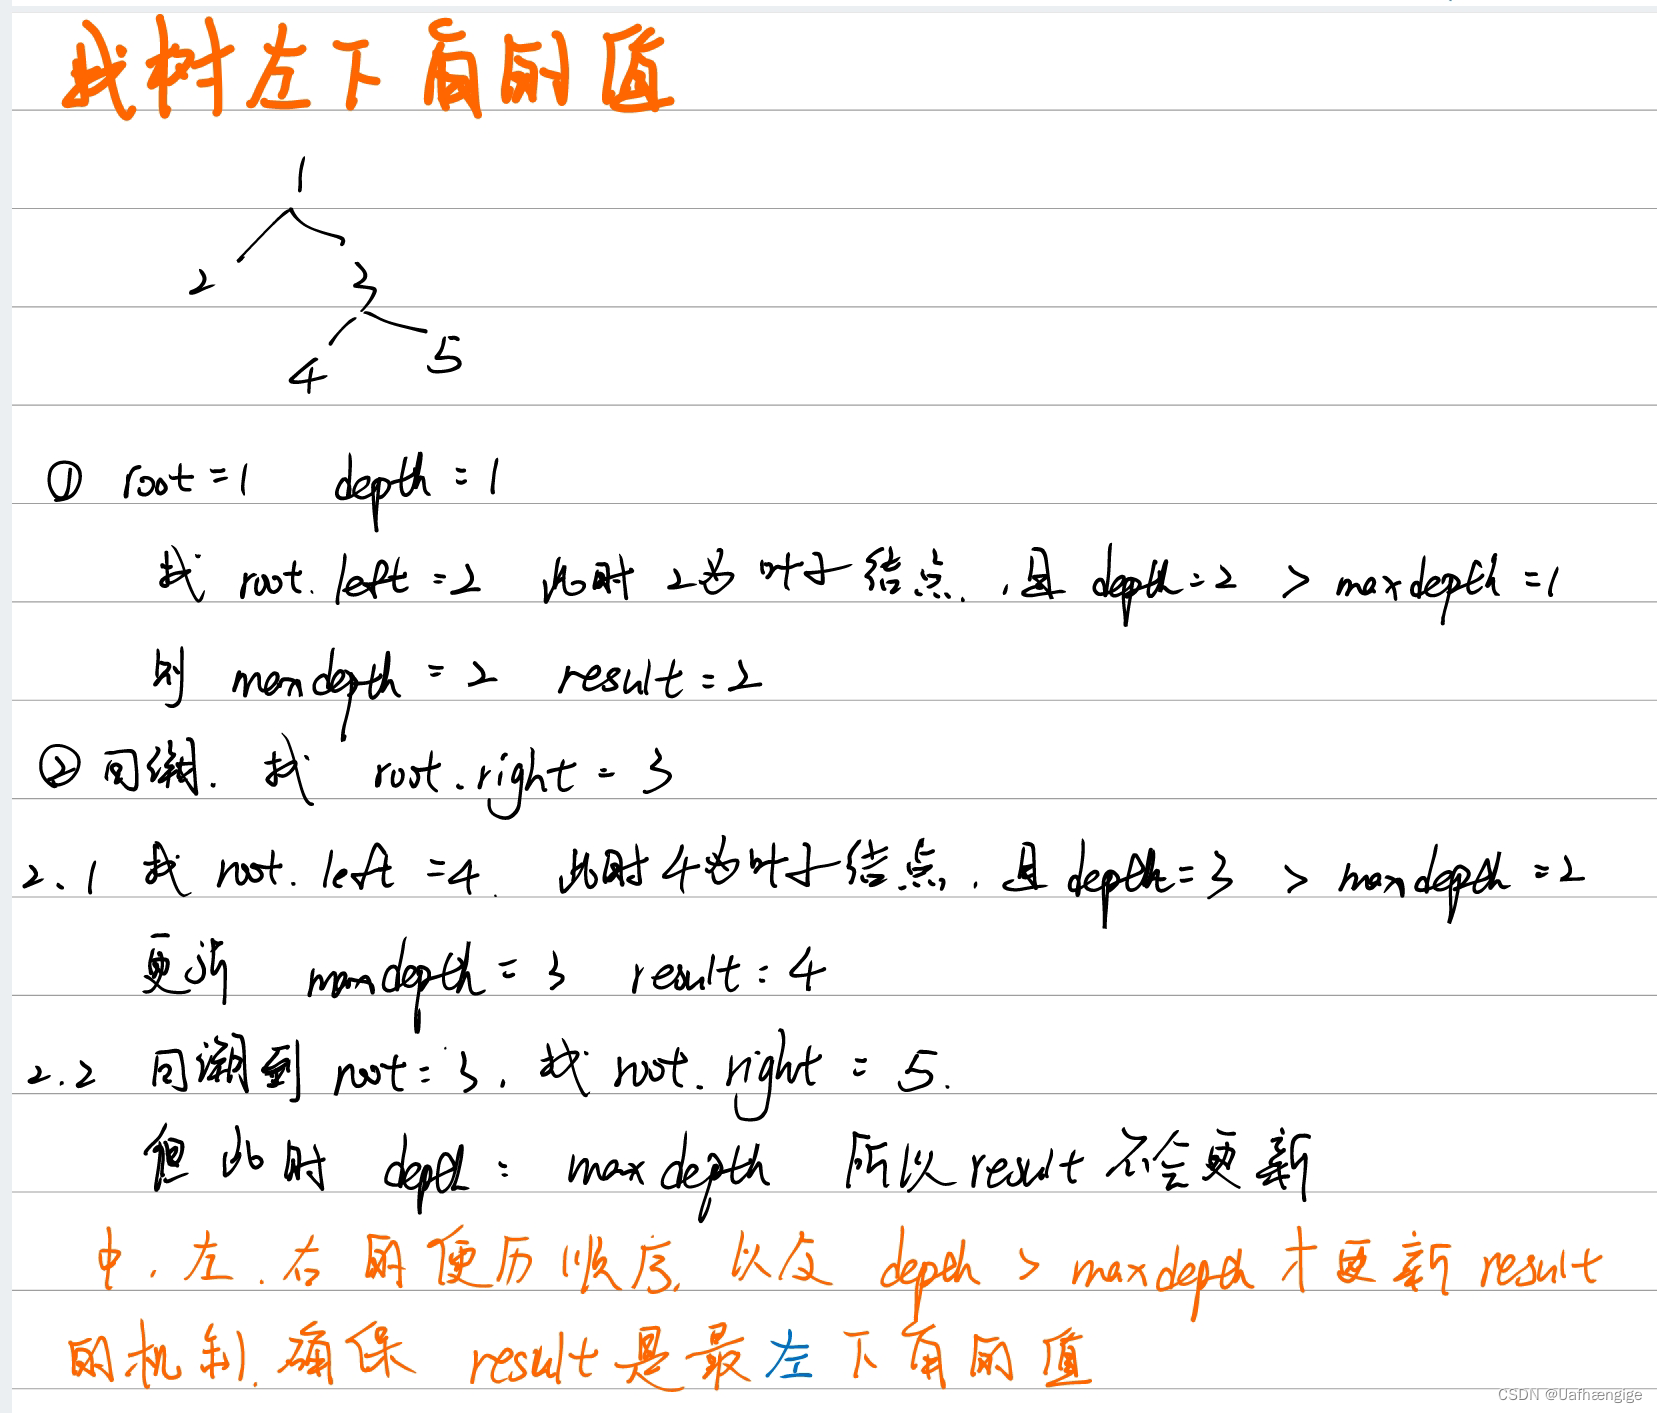 找树左下角的值
1
2 3
4 5
① root=1 depth=1
找 root.left=2 此时2为叶子结点,且 depth=2 > maxdepth=1
则 maxdepth=2 result=2
② 回溯. 找 root.right=3
2.1 找 root.left=4. 此时4为叶子结点,且 depth=3 > maxdepth=2
更新 maxdepth=3 result=4
2.2 回溯到 root=3, 找 root.right=5.
但此时 depth = maxdepth 所以result不会更新
中、左、右的便历顺序,以及 depth > maxdepth 才更新 result
的机制,确保 result是最左下角的值
CSDN @Uafhængige